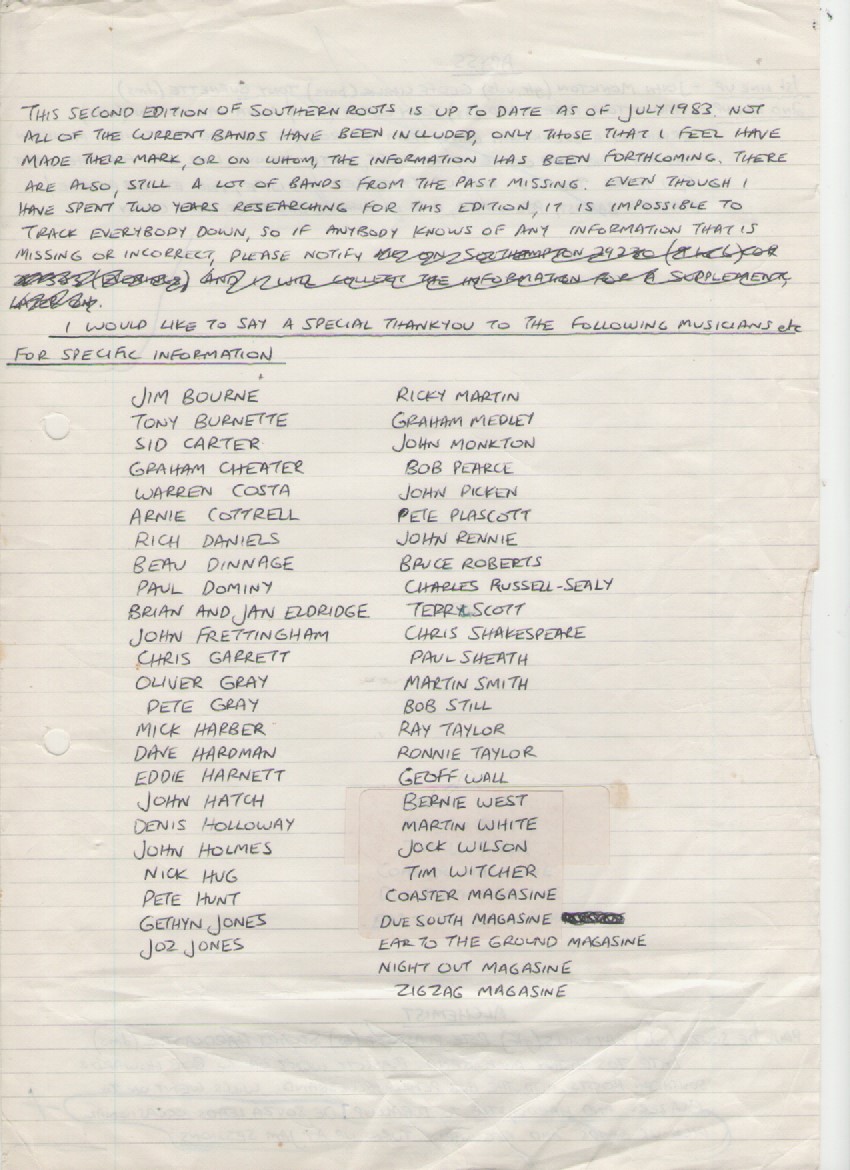 THIS SECOND EDITION OF SOUTHERN ROOTS IS UP TO DATE AS OF JULY 1983. NOT
ALL OF THE CURRENT BANDS HAVE BEEN INCLUDED, ONLY THOSE THAT I FEEL HAVE
MADE THEIR MARK, OR ON WHOM, THE INFORMATION HAS BEEN FORTHCOMING. THERE
ARE ALSO, STILL A LOT OF BANDS FROM THE PAST MISSING. EVEN THOUGH I
HAVE SPENT TWO YEARS RESEARCHING FOR THIS EDITION, IT IS IMPOSSIBLE TO
TRACK EVERYBODY DOWN, SO IF ANYBODY KNOWS OF ANY INFORMATION THAT IS
MISSING OR INCORRECT, PLEASE NOTIFY ME ON SOUTHAMPTON OR
AND I WILL COLLECT THE INFORMATION FOR A SUPPLEMENT,
LATER ON.
I WOULD LIKE TO SAY A SPECIAL THANKYOU TO THE FOLLOWING MUSICIANS etc
FOR SPECIFIC INFORMATION
JIM BOURNE
TONY BURNETTE
SID CARTER
GRAHAM CHEATER
WARREN COSTA
ARNIE COTTRELL
RICH DANIELS
BEAU DINNAGE
PAUL DOMINY
BRIAN AND JAN ELDRIDGE
JOHN FRETTINGHAM
CHRIS GARRETT
OLIVER GRAY
PETE GRAY
MICK HARBER
DAVE HARDMAN
EDDIE HARNETT
JOHN HATCH
DENIS HOLLOWAY
JOHN HOLMES
NICK HUG
PETE HUNT
GETHYN JONES
JOZ JONES
RICKY MARTIN
GRAHAM MEDLEY
JOHN MONKTON
BOB PEARCE
JOHN PICKEN
PETE PLASCOTT
JOHN RENNIE
BRUCE ROBERTS
CHARLES RUSSELL-SEALY
TERRY SCOTT
CHRIS SHAKESPEARE
PAUL SHEATH
MARTIN SMITH
BOB STILL
RAY TAYLOR
RONNIE TAYLOR
GEOFF WALL
BERNIE WEST
MARTIN WHITE
JOCK WILSON
TIM WITCHER
COASTER MAGASINE
DUE SOUTH MAGASINE
EAR TO THE GROUND MAGASINE
NIGHT OUT MAGASINE
ZIGZAG MAGASINE